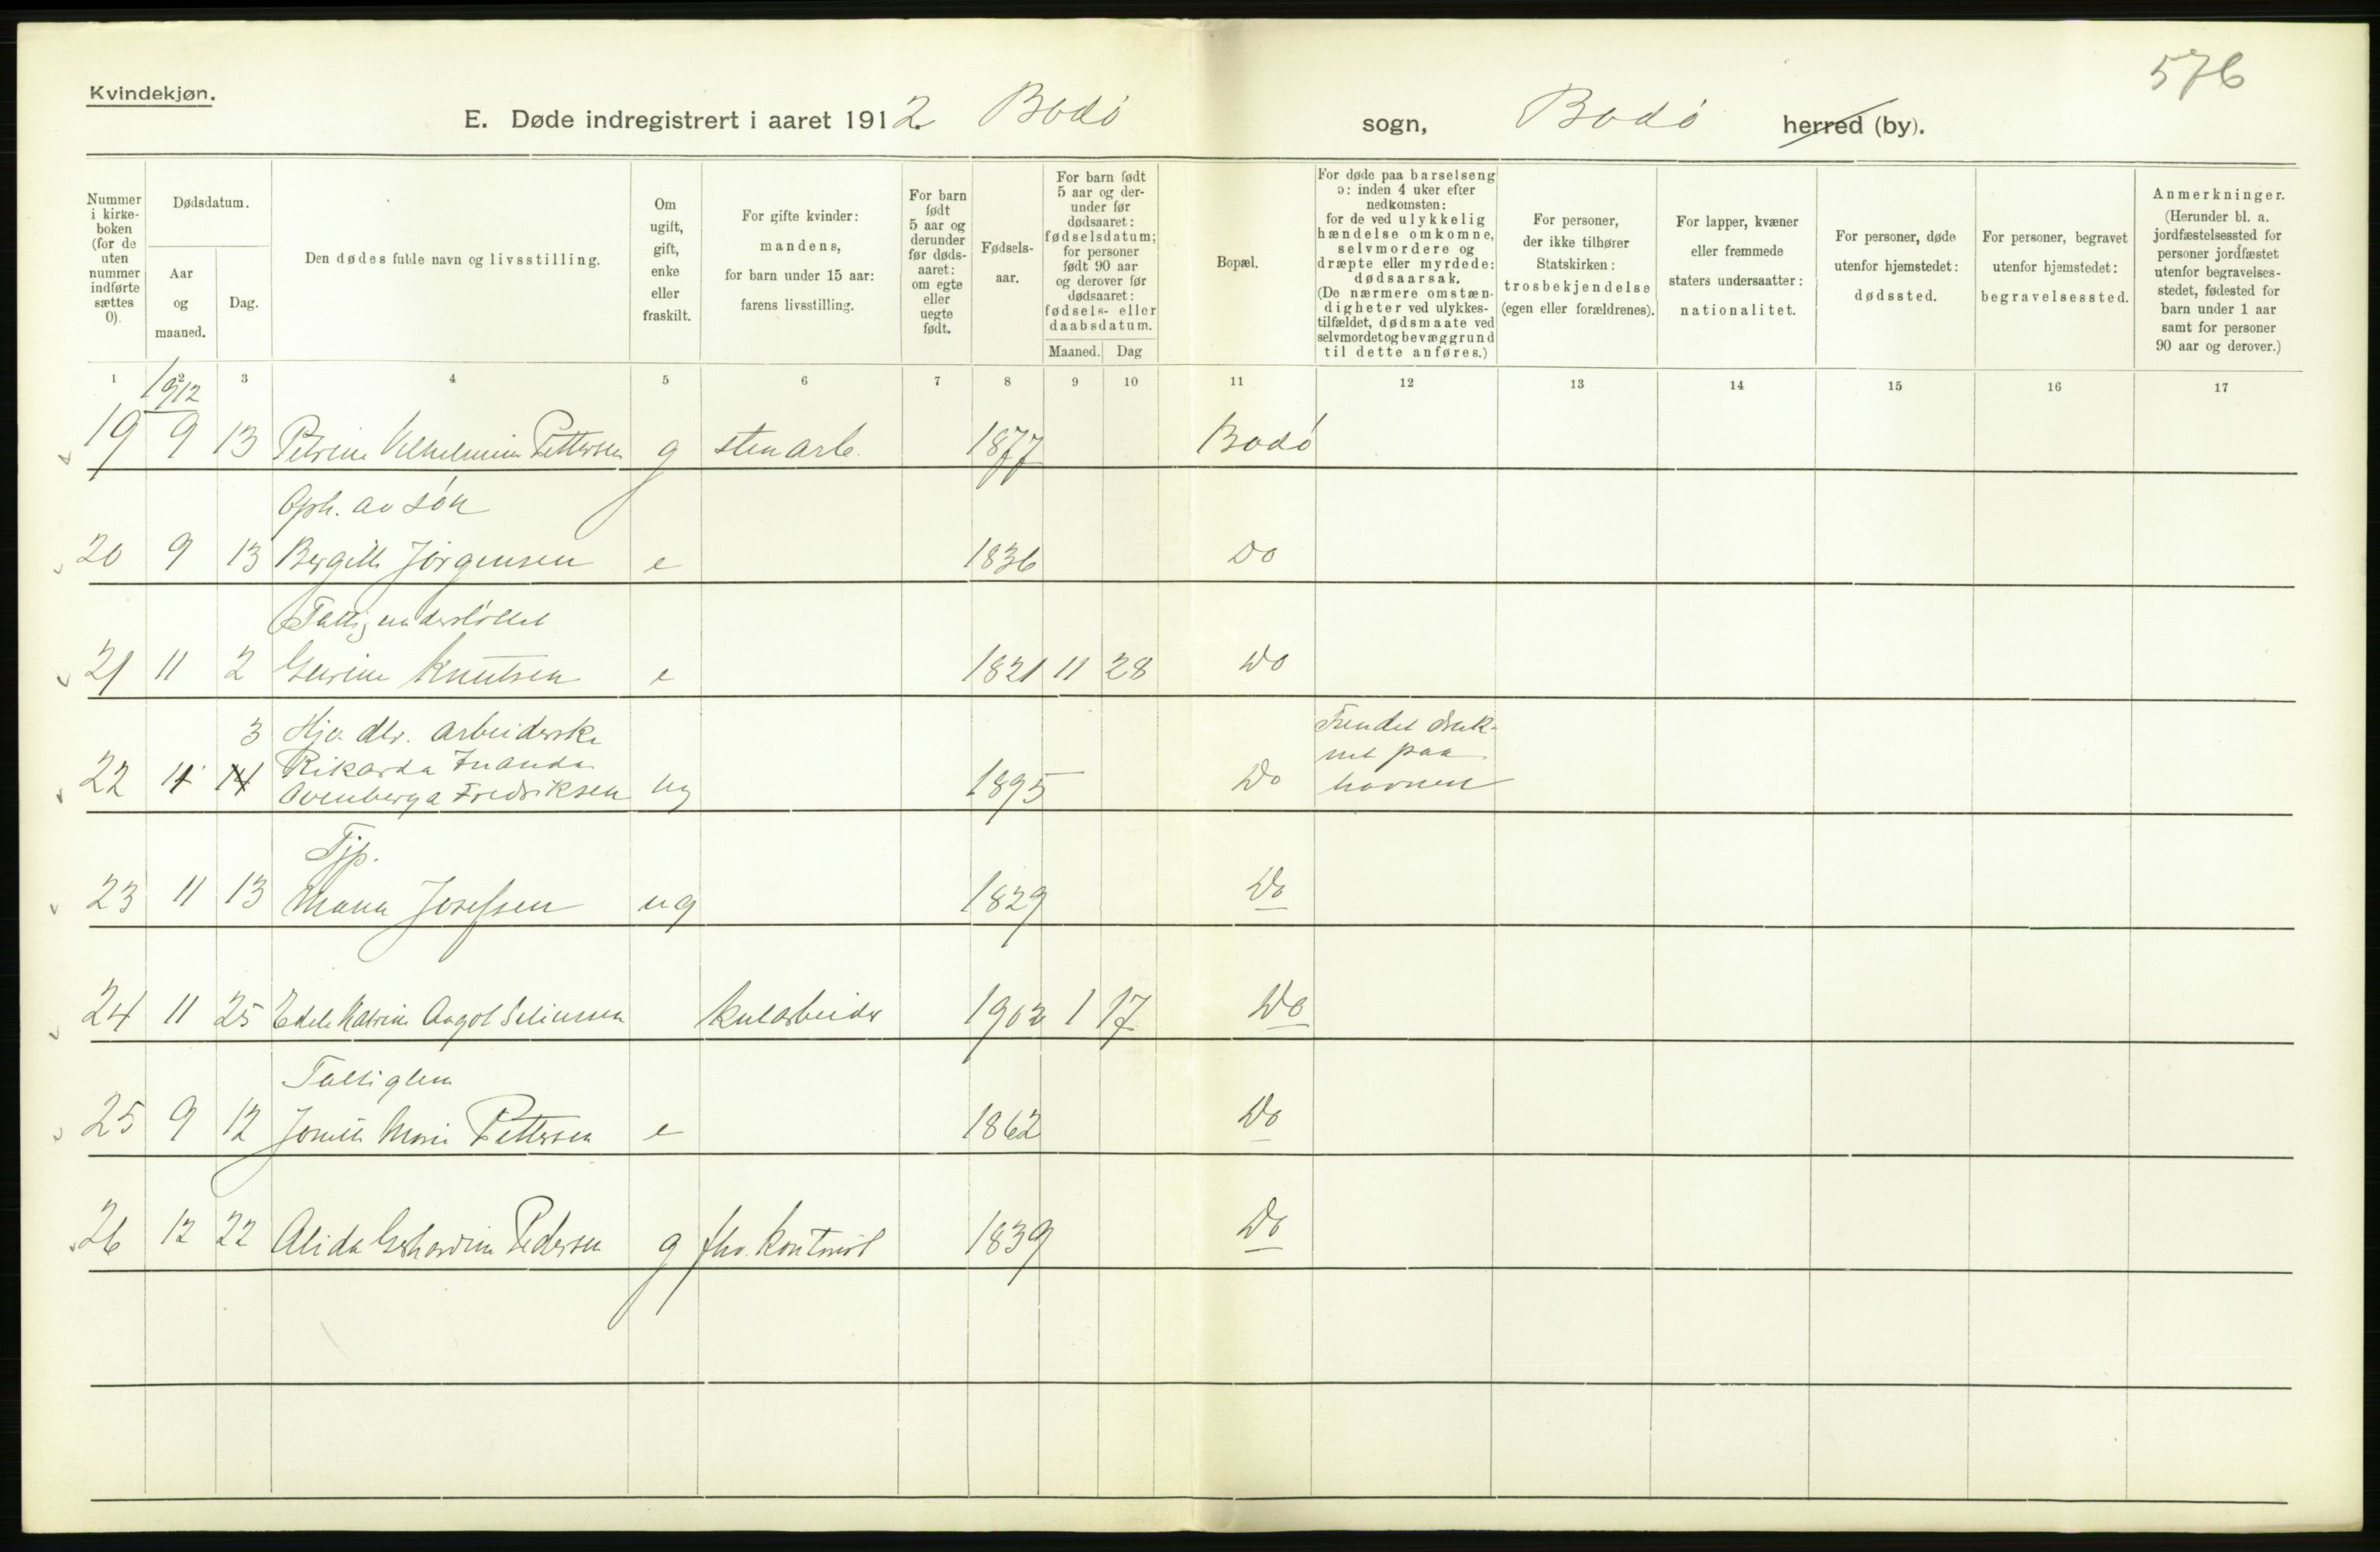 576
Kvindekjøn.
E. Døde indregistrert i aaret 1912. Bodø sogn, Bodø herred (by).
Nummer i kirkeboken (for de uten nummer indførte sættes 0).
Dødsdatum.
Aar og maaned.
Dag.
Den dødes fulde navn og livsstilling.
Om ugift, gift, enke eller fraskilt.
For gifte kvinder: mandens, for barn under 15 aar: farens livsstilling.
For barn født 5 aar og derunder før dødsaaret: om egte eller uegte født.
Fødselsaar.
For barn født 5 aar og derunder før dødsaaret: fødselsdatum; for personer født 90 aar og derover før dødsaaret: fødsels- eller daabsdatum.
Maaned. Dag
Bopæl.
For døde paa barselseng ɔ: inden 4 uker efter nedkomsten: for de ved ulykkelig hændelse omkomne, selvmordere og dræpte eller myrdede: dødsaarsak. (De nærmere omstændigheter ved ulykkestilfældet, dødsmaate ved selvmordet og bevæggrund til dette anføres.)
For personer, der ikke tilhører Statskirken: trosbekjendelse (egen eller forældrenes).
For lapper, kvæner eller fremmede staters undersaatter: nationalitet.
For personer, døde utenfor hjemstedet: dødssted.
For personer, begravet utenfor hjemstedet: begravelsessted.
Anmerkninger. (Herunder bl. a. jordfæstelsessted for personer jordfæstet utenfor begravelsesstedet, fødested for barn under 1 aar samt for personer 90 aar og derover.)
1 2 3 4 5 6 7 8 9 10 11 12 13 14 15 16 17
1912
19 9 13 Petrine Vilhelmine Pettersen g stenarb. 1877 Bodø
Oph. av søn
20 9 13 Bergitte Jørgensen e 1836 Do
Fattigunderstøttet
21 11 2 Knutsen e 1821 11 28 Do
3 Hjv. dtr. arbeiderske Fundet druk-
Rikarda net paa
22 11 14 Ovenberga Fredriksen ug 1895 Do havnen
Tjp.
23 11 13 Josefsen ug 1829 Do
24 11 25 Edele Katrine Angot Selinussen kularbeider 1902 1 17 Do
Fattiglem
25 9 12 Marie Pettersen e 1862 Do
26 12 22 Alida Gerhardine Pedersen g fhv. kontorist 1839 Do